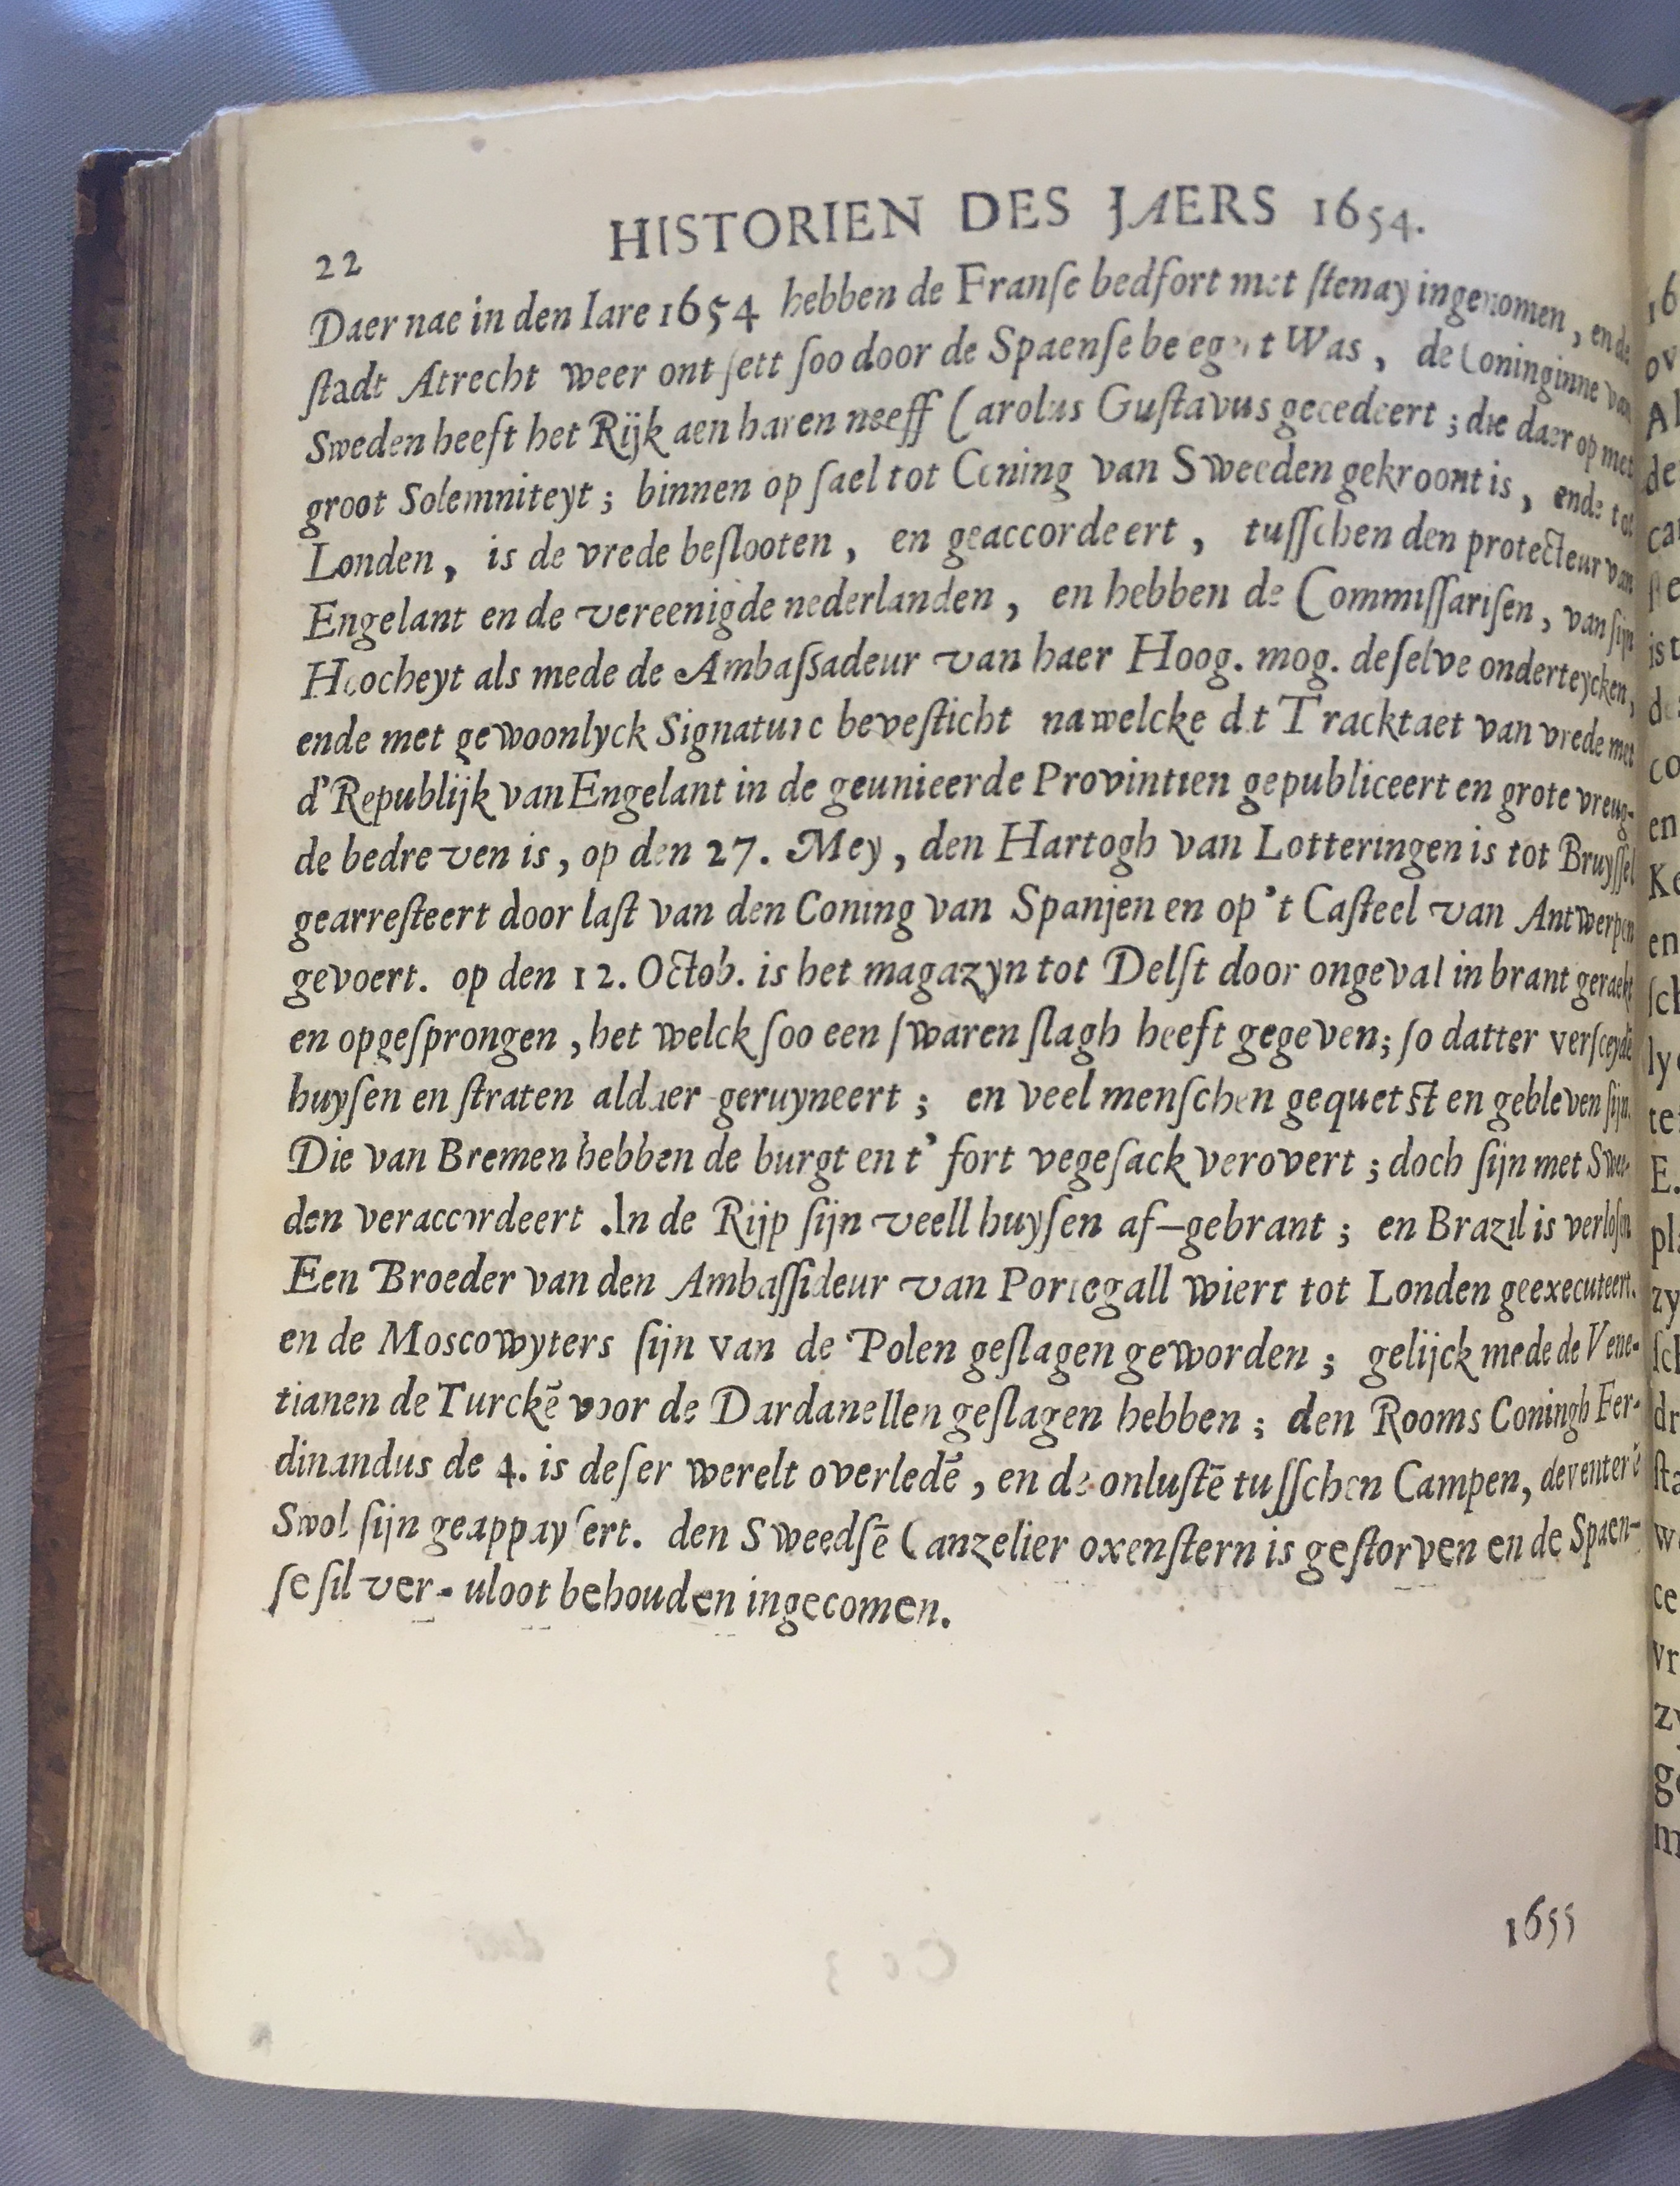 22
HISTORIEN DES JAERS 1654.
Daer nae in den Iare 1654 hebben de Franſe bedfort met ſtenay ingenomen, ende
ſtadt Atrecht weer ont ſett ſoo door de Spaenſe be egert Was, de Coninginne van
Sweden heeft het Rijk aen haren neeff Carolus Guſtavus gecedeert; die daer op met
groot Solemniteyt; binnen op ſael tot Coning van Sweeden gekroont is, ende tot
Londen, is de vrede beſlooten, en geaccordeert, tuſſchen den protecteur van
Engelant en de vereenigde nederlanden, en hebben de Commiſſariſen, van ſijn
Hoocheyt als mede de Ambaſſadeur van haer Hoog. mog. deſelve onderteycken,
ende met gewoonlyck Signature beveſticht na welcke dit Tracktaet van vrede met
d'Republijk van Engelant in de geunieerde Provintien gepubliceert en grote vreug-
de bedreven is, op den 27. Mey, den Hartogh van Lotteringen is tot Bruyſſel
gearreſteert door laſt van den Coning van Spanjen en op 't Caſteel van Antwerpen
gevoert. op den 12. Octob. is het magazyn tot Delft door ongeval in brant geraekt
en opgeſprongen, het welck ſoo een ſwaren ſlagh heeft gegeven; ſo datter verſceydē
huyſen en ſtraten aldaer geruyneert; en veel menſchen gequetſt en gebleven ſijn.
Die van Bremen hebben de burgt en t' fort vegeſack verovert; doch ſijn met Swe-
den veraccordeert. In de Rijp ſijn veell huyſen af-gebrant; en Brazil is verloſen
Een Broeder van den Ambaſſadeur van Portegall wiert tot Londen geexecuteert.
en de Moscowyters ſijn van de Polen geſlagen geworden; gelijck mede de Vene-
tianen de Turckē voor de Dardanellen geſlagen hebben; den Rooms Coningh Fer-
dinandus de 4. is deſer werelt overledē, en de onluſtē tuſſchen Campen, deventer ē
Swol ſijn geappayſert. den Sweedſē Canzelier oxenſtern is geſtorven en de Spaen-
ſe ſilver-uloot behouden ingecomen.
1655